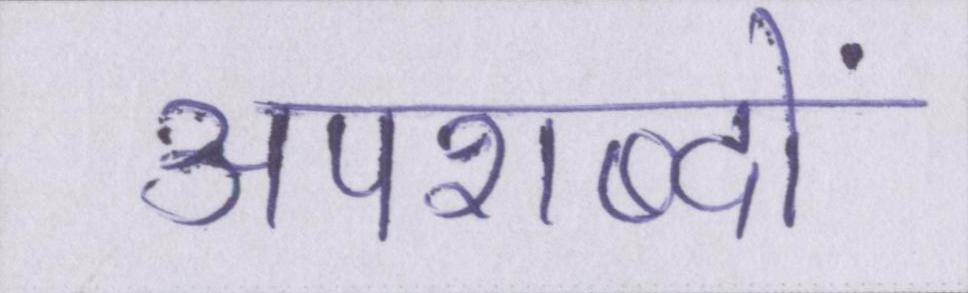 अपशब्दों